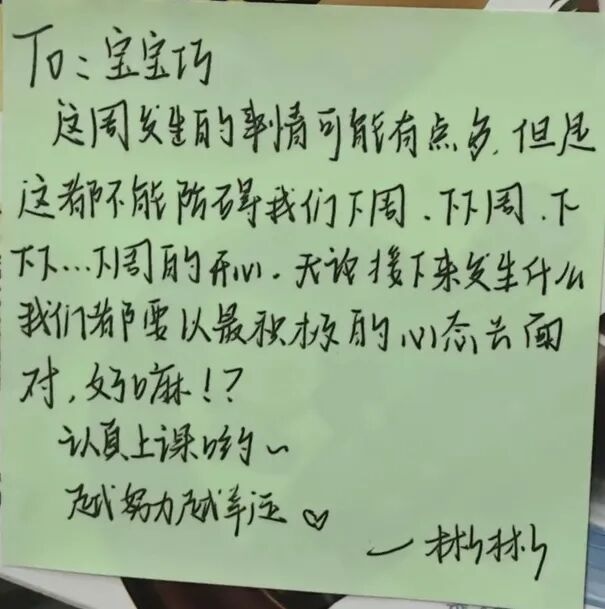 To：宝宝巧
这周发生的事情可能有点多，但是
这都不能防碍我们下周、下下周、下
下下…下周的开心。无论接下来发生什么
我们都要以最积极的心态去面
对，好嘛！？
认真上课哟~
越努力越幸运♡
—彬彬